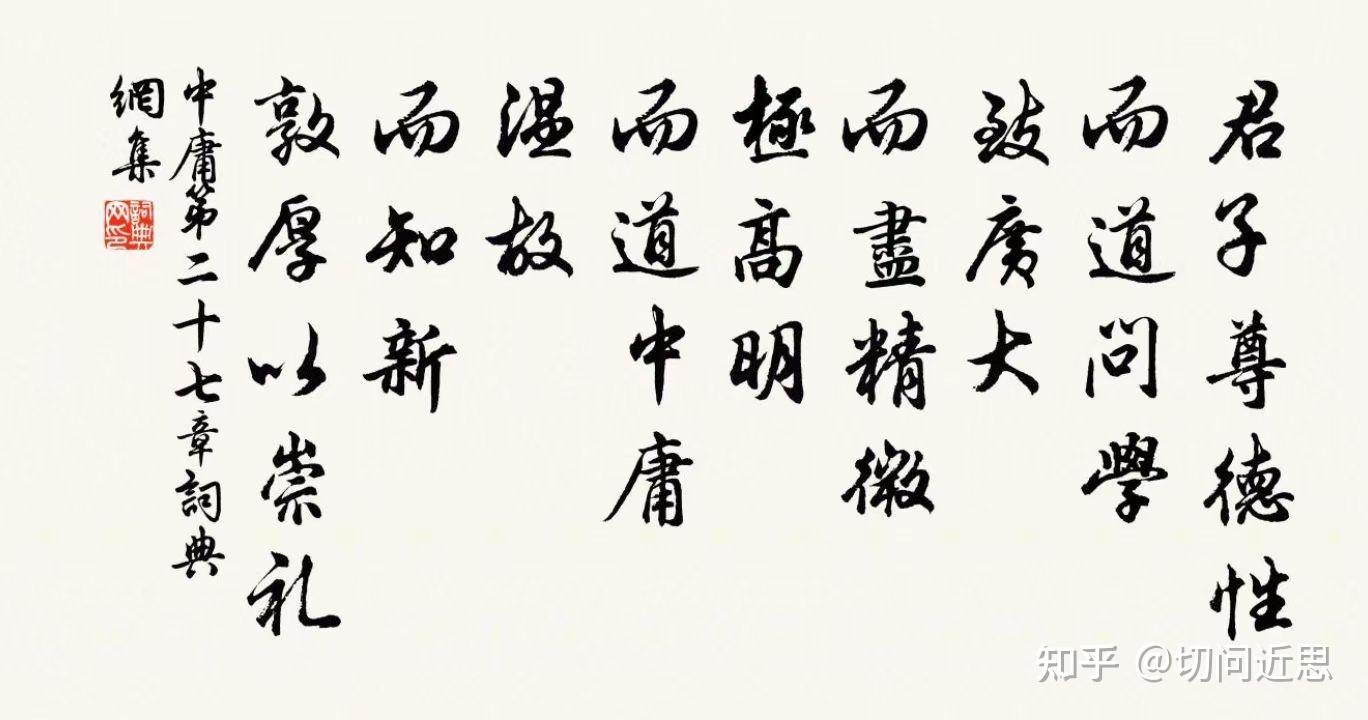 君子尊德性
而道問學
致廣大
而盡精微
極高明
而道中庸
溫故
而知新
敦厚以崇礼
中庸第二十七章詞典
網集
詞典
网印
知乎 @切问近思